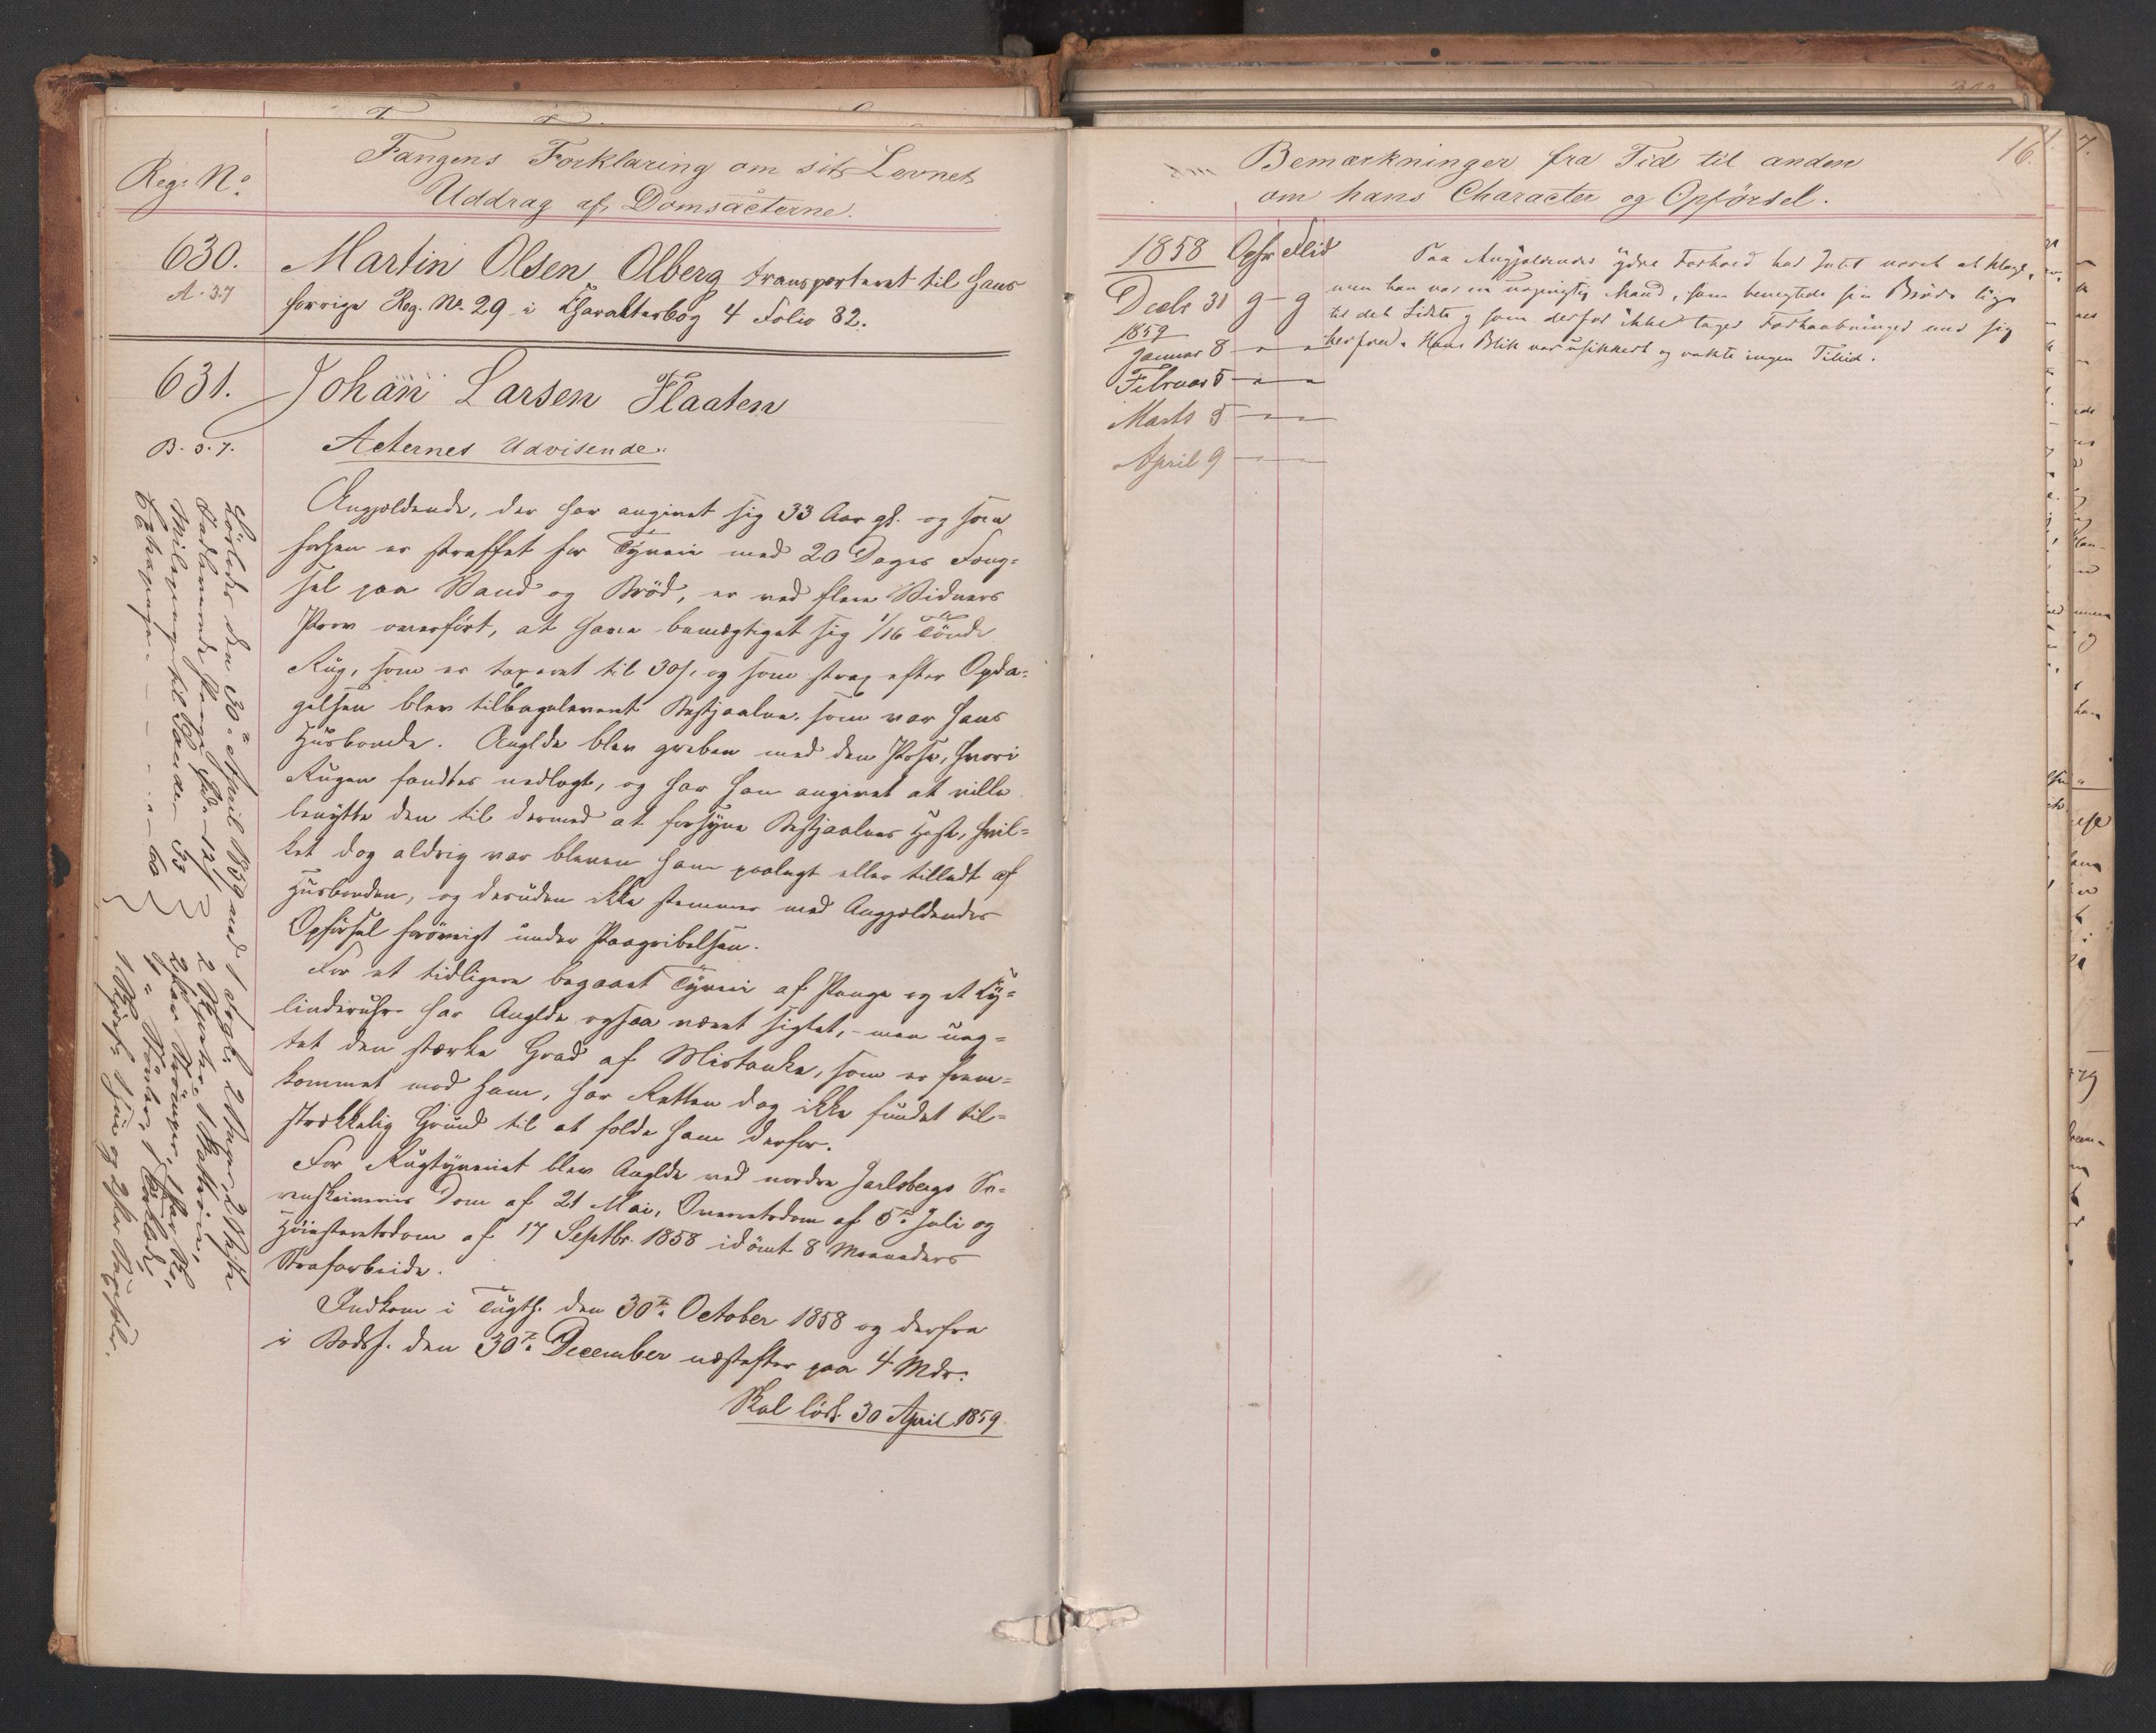 Reg: No.
Fangens Forklaring om sit Levnet
Uddrag af Domsacterne.
630.
A. 37
Martin Olsen Olberg transporteret til hans
forrige Reg. No. 29 i Charakterbog 4 Folio 82.
631.
Johan Larsen Flaaten
B. 3. 7.
Acternes Udvisende:
Angjeldende, der har angivet sig 33 Aar gl. og som
forhen er straffet for Tyveri med 20 Dages Fæng=
sel paa Vand og Bröd, er ved flere Vidners
Prov overfört, at have bemægtiget sig 1/16 Tönde
Rug, som er taxeret til 30 s. og som strax efter Opda-
gelsen blev tilbageleveret Bestjaalne, som var hans
Husbonde. Anglde blev greben med den Pose, hvori
Rugen fandtes nedlagt, og har han angivet at ville
benytte den til dermed at forsyne Bestjaalnes Hest, hvil=
ket dog aldrig var bleven ham paalagt eller tilladt af
Husbonden, og desuden ikke stemmer med Angjeldendes
Opförsel forövrigt under Paagribelsen.
For et tidligere begaaet Tyveri af Penge og et Cy=
linderuhr har Anglde ogsaa været sigtet, - men uag=
tet den stærke Grad af Mistanke, som er frem=
kommet mod ham, har Retten dog ikke fundet til=
strækkelig Grund til at fælde ham derfor.
For Rugtyveriet blev Anglde ved nordre Jarlsbergs So-
renskriveries Dom af 21 Mai, Overretsdom af 5te Juli og
Höiesteretsdom af 17 Septbr. 1858 idömt 8 Maaneders
Strafarbeide.
Indkom i Tugth. den 30te October 1858 og derfra
i Bodsf. den 30te December næstefter paa 4 Mdr.
Skal lösl. 30 April 1859
Lösladt den 30te April 1859 med
1 2 2
2 1
2 Par Strömper, 1 Par
1
1 1 og 2 Par
16.
Bemærkninger fra Tid til anden
om hans Character og Opförsel.
1858 Opfr Flid
Decbr 31 g - g
1859
Januar 8 - " - "
Februar 5 - " - "
Marts 5 - " - "
April 9 - " - "
Paa Angjældendes ydre Forhold har Intet været at klage,
men han var en uopvigtig Mand, som benegtede sin Bröde lige
til det Sidste og som derfor ikke tager Forhaabninger med sig
herfra. Hans Blik var usikkert og vakte ingen Tillid.